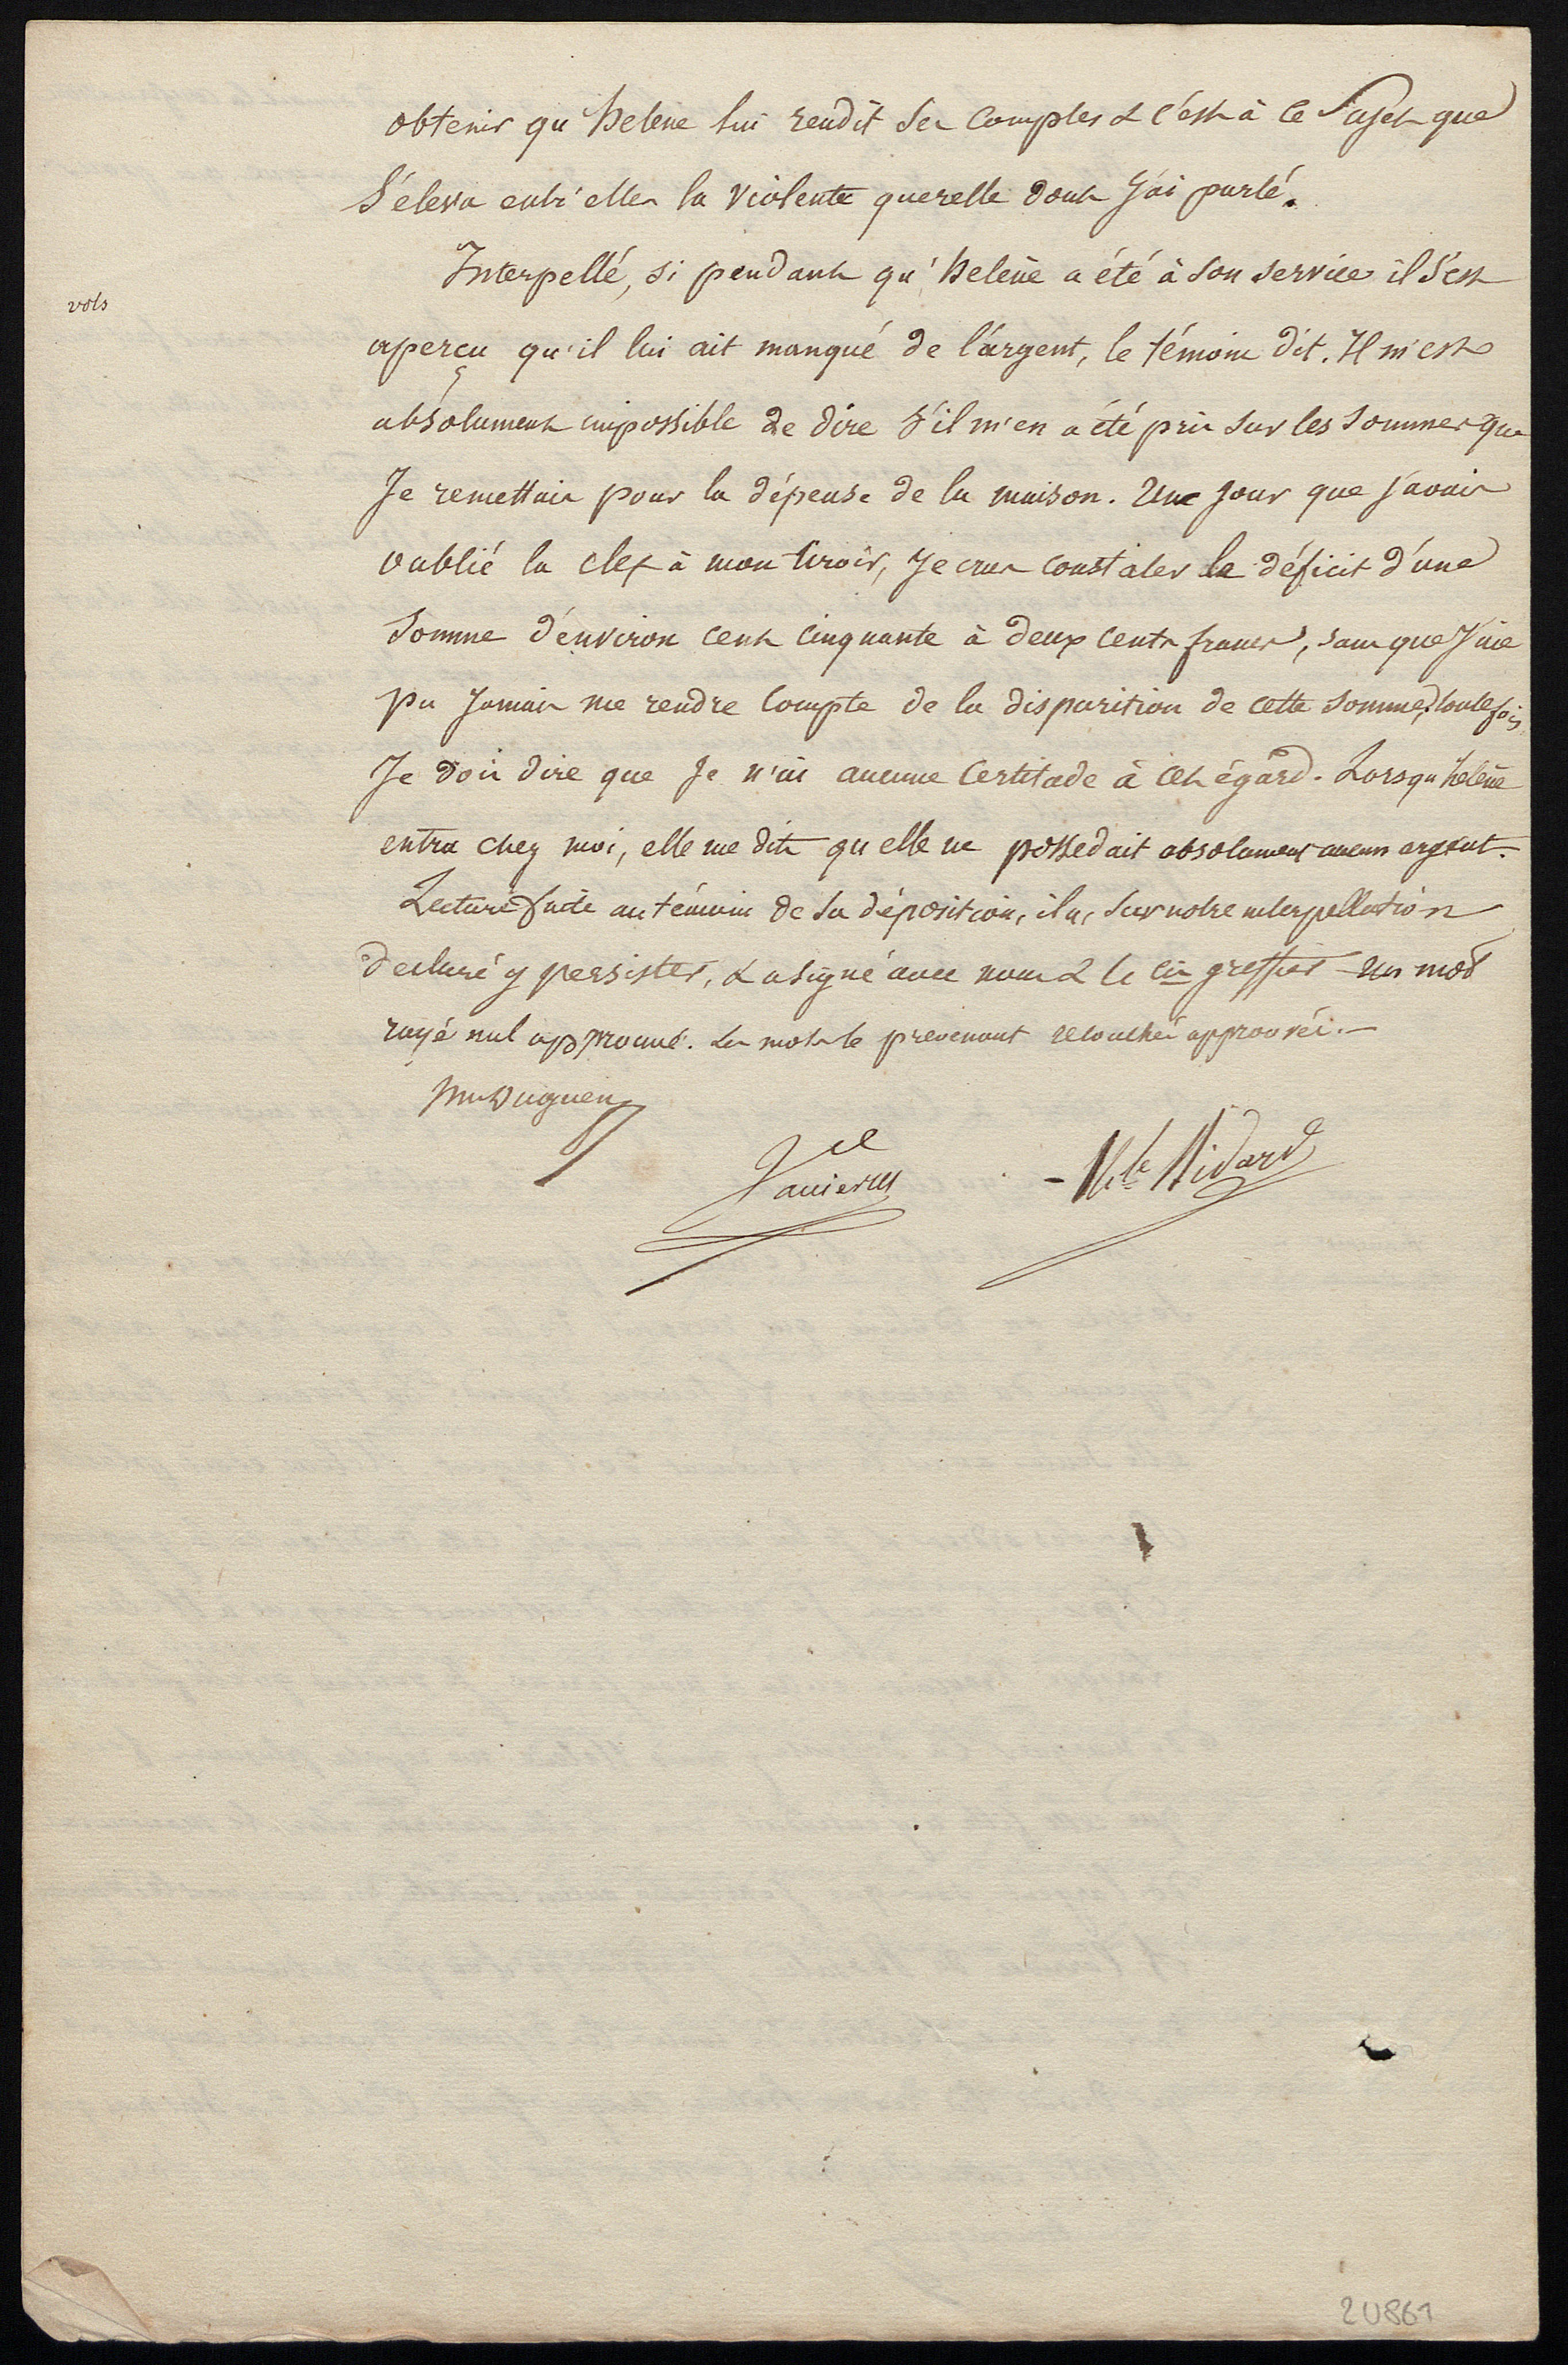 obtenir qu'helene lui rendît ses comptes & c'est à ce sujet que
s'éleva entr'elles la violente querelle dont j'ai parlé.
Interpellé, si pendant qu'helène a été à son service il s'est
vols
aperçu qu'il lui ait manqué de l'argent, le témoin dit. Il m'est
absolument impossible de dire s'il m'en a été pris sur les sommes que
Je remettais pour la dépense de la maison. Un jour que j'avais
oublié la clef à mon tiroir, Je crus constater le déficit d'une
somme d'environ cent cinquante à deux cents francs, sans que J'aie
pu Jamais me rendre compte de la disparition de cette somme, toutefois
Je dois dire que Je n'ai aucune certitude à cet égard. Lorsqu'helène
entra chez moi, elle me dit qu'elle ne possedait absolument aucun argent.
Lecture faite au témoin de sa déposition, il a, sur notre interpellation
declaré y persister, & a signé avec nous & le cis greffier un mot
rayé nul approuvé. Les mots le prevenant retouchés approuvés.
Vanierus
Hte Bidard
2U861